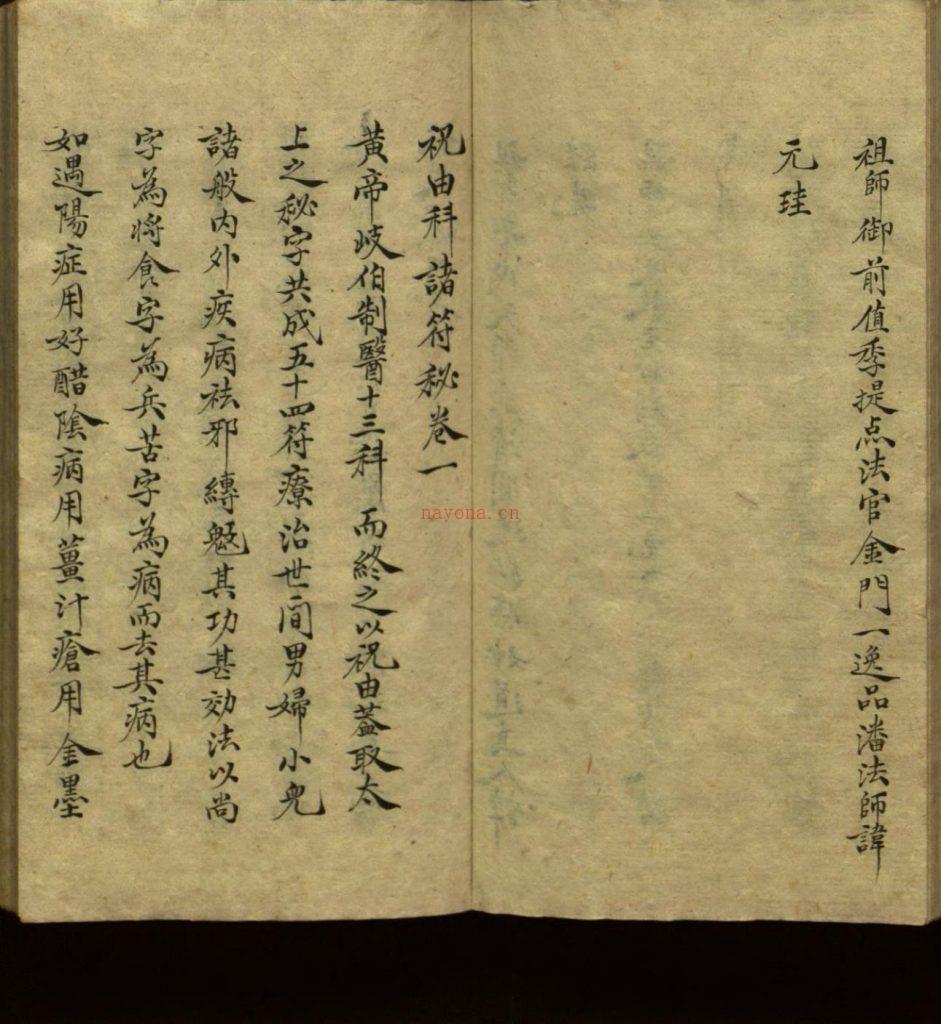 祖師御前值季提点法官金門一逸品潘法師諱
元珪
祝由科諸符秘卷一
黄帝岐伯制醫十三科而終之以祝由蓋取太
上之秘字共成五十四符療治世间男婦小兒
諸般内外疾病袪邪縛魃其功甚効法以尚
字為將食字為兵苦字為病而去其病也
如遇陽症用好醋陰病用薑汁瘡用金墨
nayona.cn